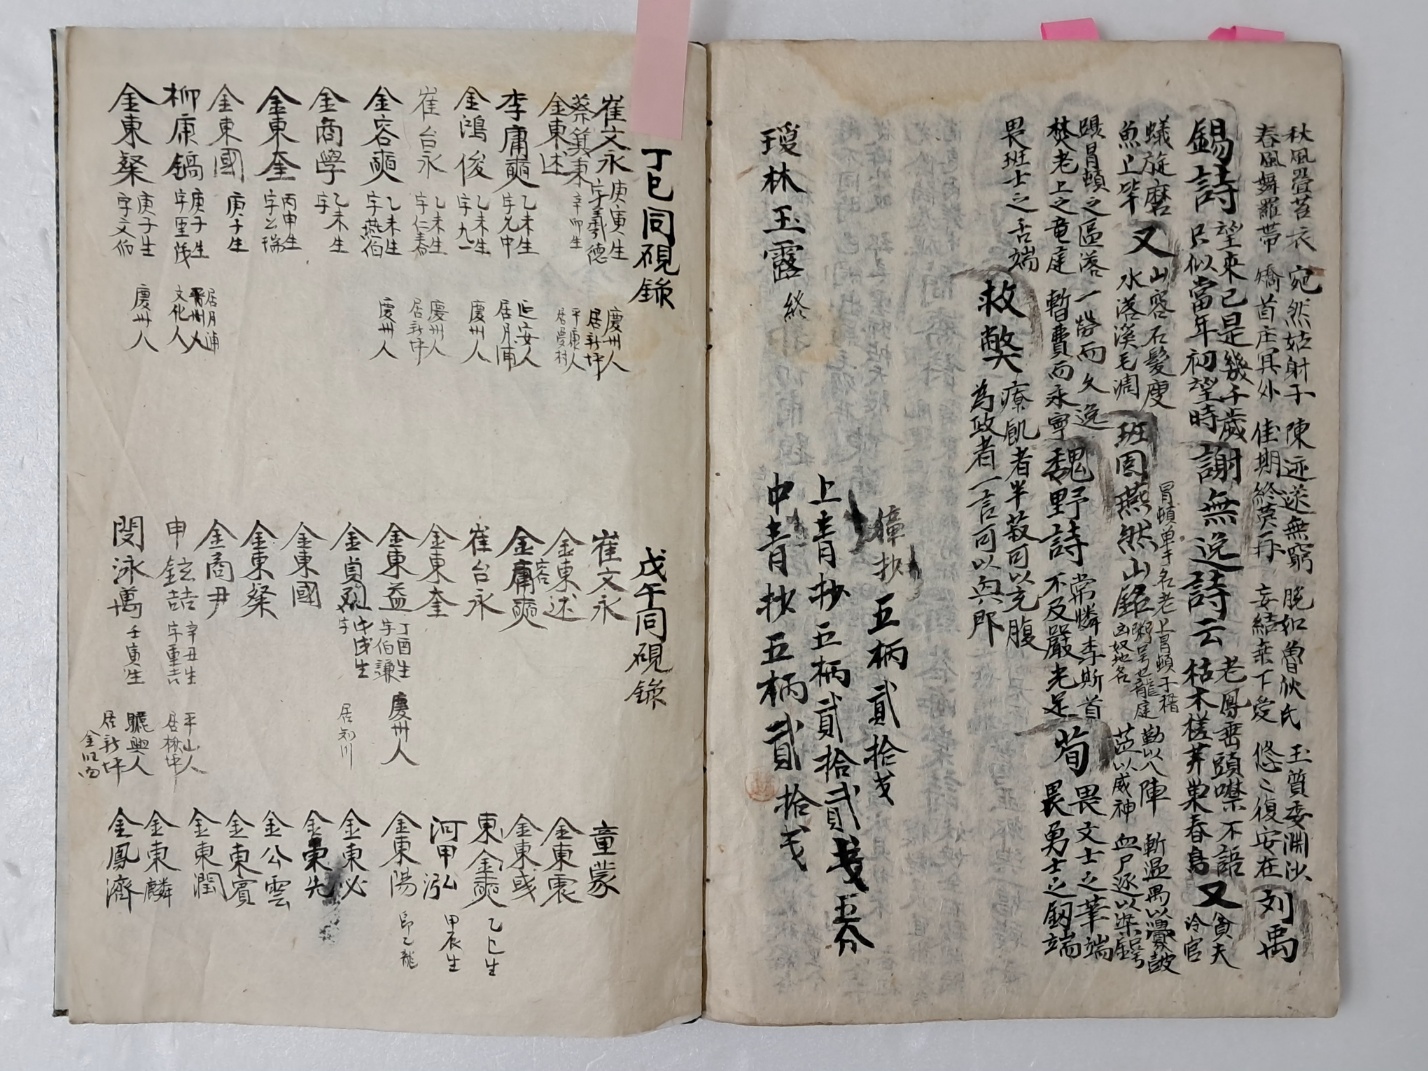 秋風疊苔衣 宛然姑射子 陳迹遂無窮 脫如魯伙氏 玉質委淵沙
春風舞羅帶 矯首庄具外 佳期終莫再 妄結垂下愛 悠〻復安在 列禹
錫詩 望來已是幾千歲
只似當年初望時 謝無逸詩云 老鳳垂頭噤不語
枯木槎牙巣春鳥 又 貪夫
冷官
蟻旋磨
魚上竿 又 山寒石髮瘦
水落溪毛凋 班固燕然山銘 勒以八陣
莅以威神 血尸逐以染鍔
躡冒頓之區落
焚老上之竜庭 一勞而久逸
暫費而永寧 魏野詩 常憐李斯首
不及嚴光足 荀 畏文士之華端
畏勇士之釼端
畏班士之舌端
救獘 療飢者半菽可以充腹
為政者一言可以興邦
瓊林玉露 終
抄 五柄貳拾戈
上青抄五柄貳拾貳戔五分
中青抄五柄貳拾戈
丁巳同硯錄
崔文永 庚寅生 字義德 慶州人 居新坪
蔡箕東 辛卯生 平康人
金東述
李庸奭 乙未生 字允中 延安人 居月浦
金鴻俊 乙未生 字九一 慶州人
崔台永 乙未生 字仁泰 慶州人 居新坪
金容奭 乙未生 字燕伯 慶州人
金商學 乙未生 字
金東奎 丙申生 字公瑞
金東國 庚子生
柳庸鎬 庚子生 字聖茂 文化人 居月浦
金東粲 庚子生 字文伯 慶州人
戊午同硯錄
崔文永
金東述
金容奭
崔台永
金東奎
金東益 丁酉生 字伯謙 慶州人
金貞烈 戊戌生 字 居知川
金東國
金東粲
金商尹
申鉉喆 辛丑生 字重吉 平山人 居楸中
閔泳萬 壬寅生 驪興人 居新坪
童蒙
金東震
金東彧
東金奭 乙巳生
河甲泓 甲辰生
金東陽 即乙龍
金東必
金東先
金公雲
金東賓
金東潤
金東麟
金鳳濟